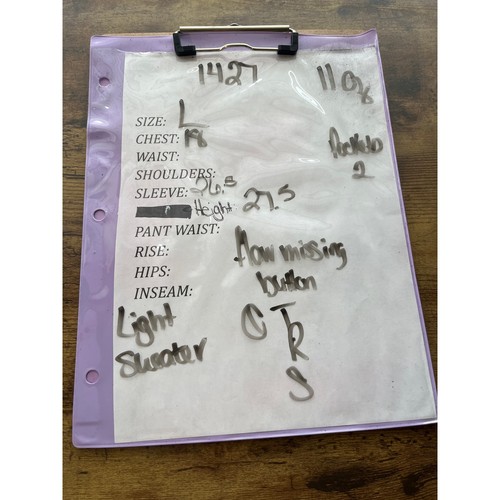 1427 11 oz
SIZE: L
CHEST: 18
WAIST: Pockets
2
SHOULDERS:
SLEEVE: 26.5
Height 27.5
PANT WAIST:
RISE: flaw missing
HIPS: button
INSEAM:
Light
Sweater
C T
R
S